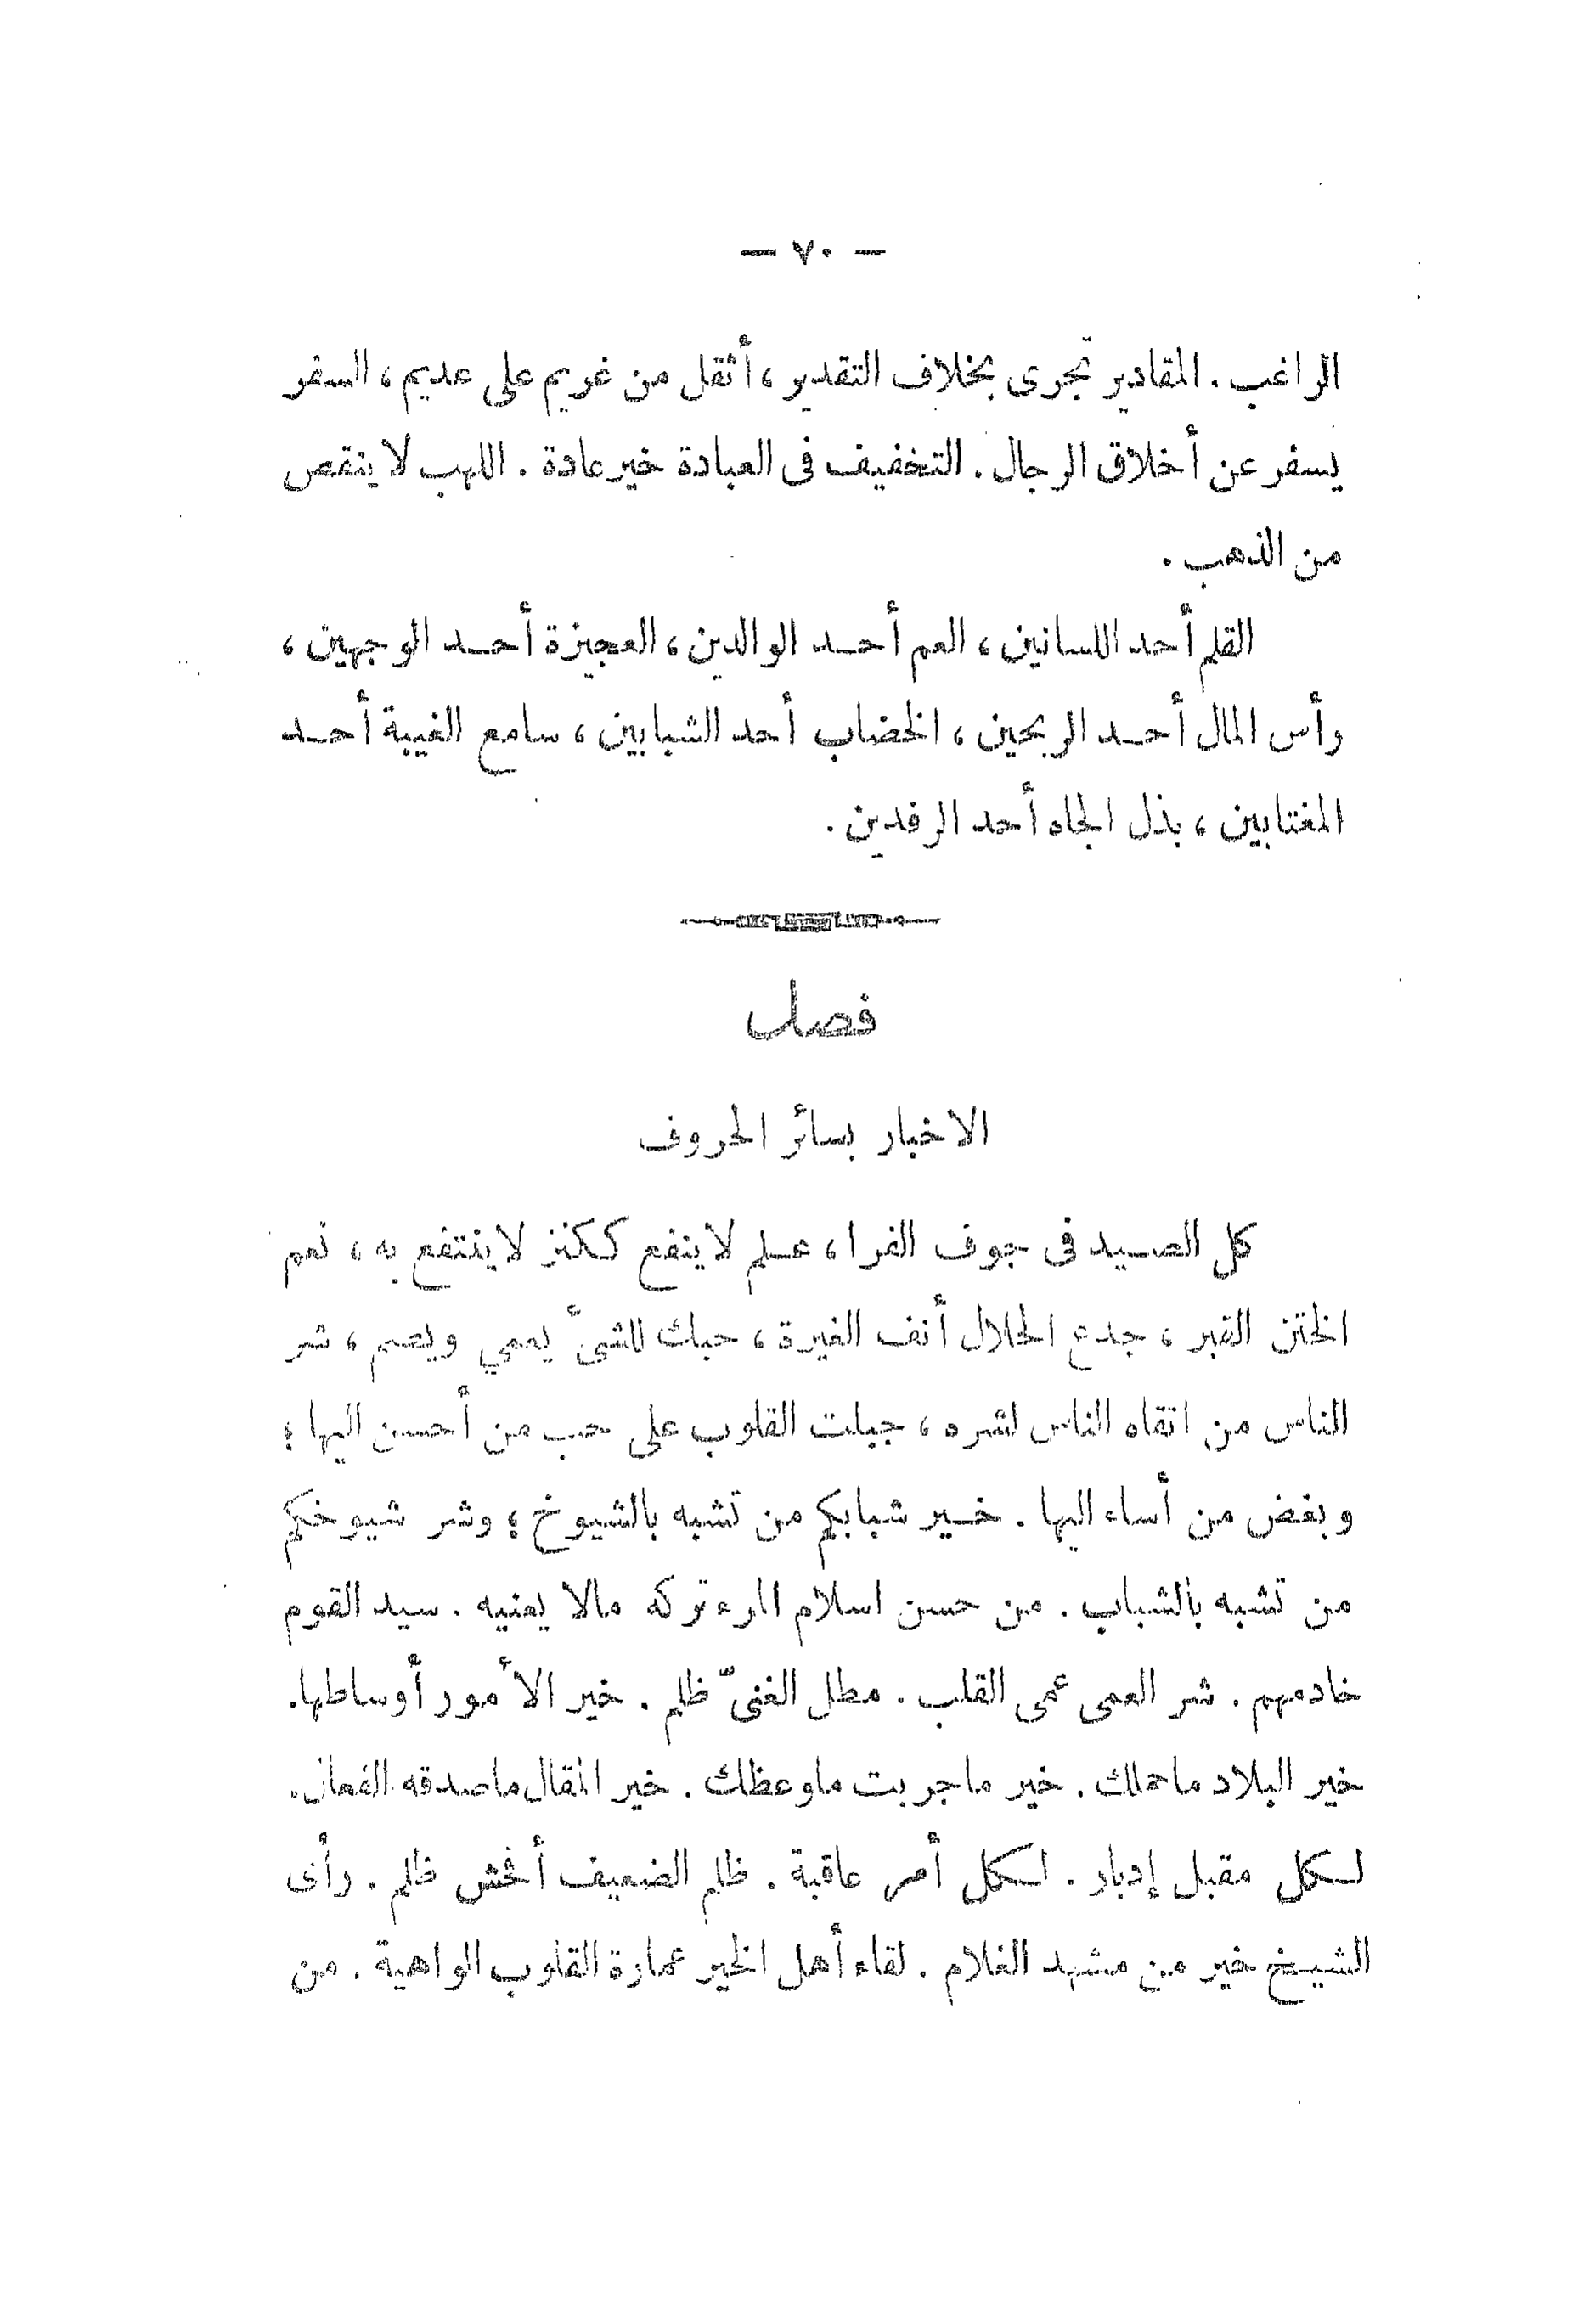 — ٧٠ —
الراغب . المقادير تجرى بخلاف التقدير ، أثقل من غريم على عديم ، السفر
يسفر عن أخلاق الرجال . التخفيف فى العبادة خير عادة . اللهب لا ينقص
من الذهب .
القلم أحد اللسانين ، العم أحد الوالدين ، العجيزة أحد الوجهين ،
رأس المال أحد الربحين ، الخضاب أحد الشبابين ، سامع الغيبة أحد
المغتابين ، بذل الجاه أحد الرفدين .
فصل
الاخبار بسائر الحروف
كل الصيد فى جوف الفرا ، علم لا ينفع ككنز لا ينتفع به ، نعم
الختن القبر ، جدع الحلال أنف الغيرة ، حبك للشئ يعمي ويصم ، شر
الناس من اتقاه الناس لشره ، جبلت القلوب على حب من أحسن اليها ؛
وبغض من أساء اليها . خير شبابكم من تشبه بالشيوخ ؛ وشر شيوخكم
من تشبه بالشباب . من حسن اسلام المرء تركه مالا يعنيه . سيد القوم
خادمهم . شر العمى عمى القلب . مطل الغنىّ ظلم . خير الأمور أوساطها .
خير البلاد ماحملك . خير ماجربت ماوعظك . خير المقال ماصدقه الفعال .
لكل مقبل إدبار . لكل أمر عاقبة . ظلم الضعيف أفحش ظلم . رأى
الشيخ خير من مشهد الغلام . لقاء أهل الخير عمارة القلوب الواهية . من